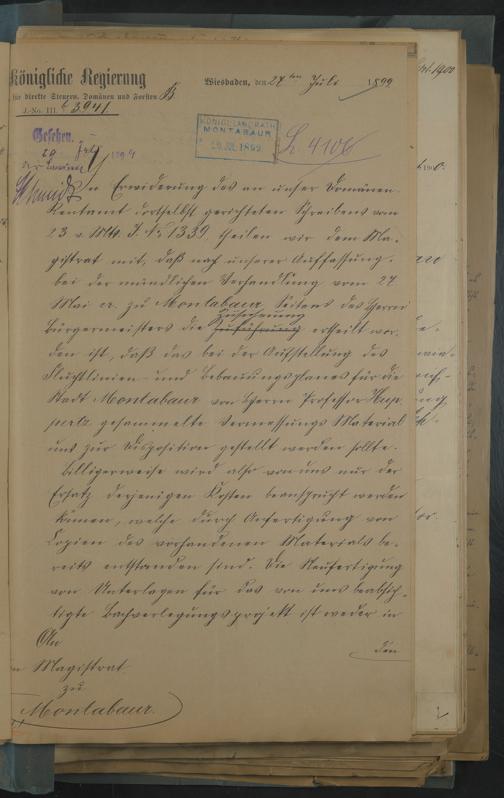 Königliche Regierung
für direkte Steuern, Domänen und Forsten B.
J.-No. III. C 3941.
Wiesbaden, den 27ten Juli 1899
Gesehen.
KÖNIGL. LANDRATH
MONTABAUR
29. JUL. 1899
L. 4106
Der Landrat
Schmidt
In Erwiderung des an unser Domänen-
Rentamt dortselbst gerichteten Schreibens vom
23. v. Mts. J. No 1339, theilen wir dem Ma-
gistrat mit, daß nach unserer Auffassung
bei der mündlichen Verhandlung vom 27
Mai cr. zu Montabaur Seitens des Herrn
Zusicherung
Bürgermeisters die Zusicherung ertheilt wor-
den ist, daß das bei der Aufstellung des
Fluchtlinien- und Bebauungsplanes für die
Stadt Montabaur von Herrn Professor Hup-
pertz gesammelte Vermessungs Material
uns zur Disposition gestellt werden sollte.
Billigerweise wird also von uns nur der
Ersatz derjenigen Kosten beansprucht werden
können, welche durch Anfertigung von
Copien des vorhandenen Materials be-
reits entstanden sind. Die Neufertigung
von Unterlagen für das von uns beabsich-
tigte Bachverlegungsprojekt ist weder in
den
An
Magistrat
zu
Montabaur.